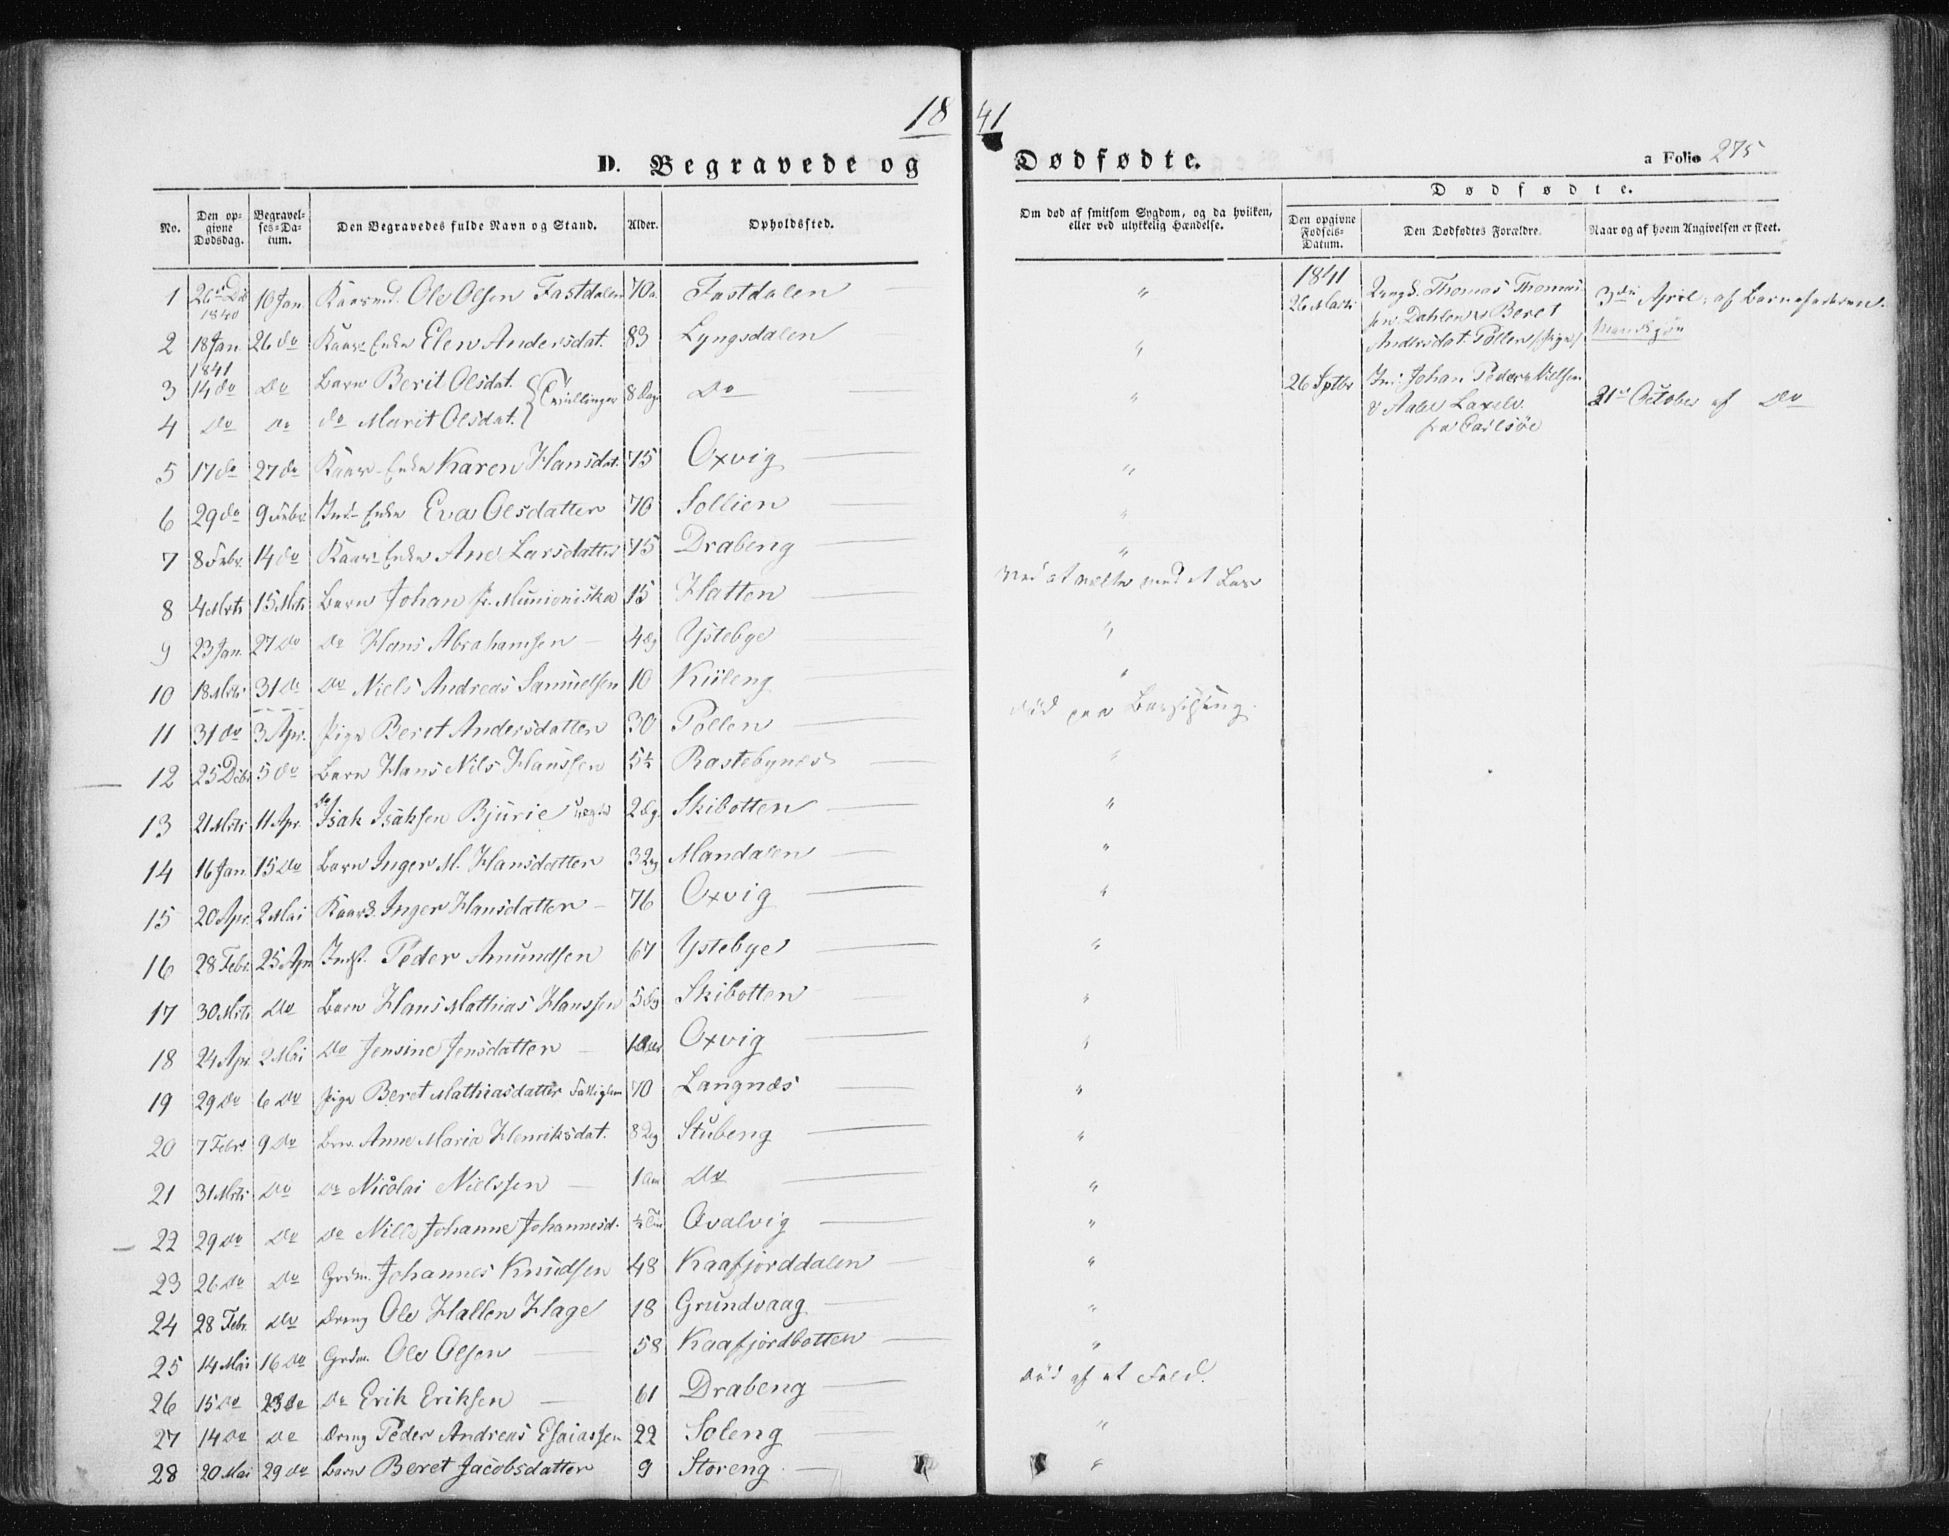 1841
D. Begravede og Dødfødte.
a Folio 275
No. Den opgivne Dødsdag. Begravelses-Datum. Den Begravedes fulde Navn og Stand. Alder. Opholdssted.
Om død af smitsom Sygdom, og da hvilken, eller ved ulykkelig Hændelse.
Dødfødte.
Den opgivne Fødsels-Datum. Den Dødfødtes Forældre. Naar og af hvem Angivelsen er skeet.
1 26 Dcb 1840 16 Jan. Kaarmd. Ole Olsen Fastdalen 70 a. Fastdalen "
2 18 Jan. 1841 26 do Kaar-Enke Elen Andersdat. 83 Lyngsdalen "
3 14 do Do Barn Berit Olsdat. Tvillinger 8 Dage Do "
4 Do Do do Marit Olsdat.
5 17 do 27 do Kaar-Enke Karen Hansdat. 75 Oxvig "
6 29 do 9 Febr. Ind-Enke Eva Olsdatter 70 Sollien "
7 8 Febr. 14 do Kaar-Enke Ane Larsdatter 75 Drabeng "
8 4 Mrts 15 Mrts Barn Johan fr. Munioniska 15 Hatten ved at vælte med et Læs
9 23 Jan. 27 Do Do Hans Abrahamsen 4 Dg Ystebye "
10 18 Mrts 31 Do Do Niels Andreas Samuelsen 10 Kiileng "
11 31 do 3 Apr. Pige Beret Andersdatter 30 Pollen død paa Barselseng.
12 25 Dcbr 5 do Barn Hans Nils Hanssen 5½ Rastebynes "
13 21 Mrts 11 Apr. do Isak Isaksen Bjurie 2 Dg. Skibotten "
14 16 Jan. 15 Do Barn Inger M. Hansdatter 3 Dg Mandalen "
15 20 Apr. 2 Mai Kaark. Inger Hansdatter 76 Oxvig "
16 28 Febr. 25 Apr. Indst. Peder Amundsen 67 Ystebye "
17 30 Mrts Do Barn Hans Mathias Hanssen 5 Dg Skibotten "
18 24 Apr. 2 Mai Do Jensine Jensdatter Oxvig "
19 29 Do 6 Do Pige Beret Mathiasdatter Fattiglem 70 Langnæs "
20 7 Febr. 9 Do Brn. Anne Maria Henriksdat. 8 Dg Stubeng "
21 31 Mrts Do Do Nicolai Nielssen Do "
22 29 Do Do Do Nille Johanne Johannesd. Qvalvig "
23 26 Do Do Grdm. Johannes Knudsen 48 Kaafjorddalen "
24 28 Febr. Do Dreng Ole Hallen Hage 18 Grundvaag "
25 14 Mai 16 Do Grdm. Ole Olsen 58 Kaafjordbotten "
26 15 Do 23 Do Do Erik Eriksen 61 Drabeng død af et Fald.
27 14 Do Do Dreng Peder Andreas Esaiassen 22 Soleng "
28 20 Mai 29 do Barn Beret Jacobsdatter 9 Storeng "
1841
26 Marts Ungk. Thomas Thomas
sen Dahlen & Beret
Andersdat. Pollen /Pige/
3die April, af Barnefaderen
Mandkjøn
26 Sptbr Johan Peder Nielsen
& Aabel Laxelv.
fra Carlsøe
21 October af Do